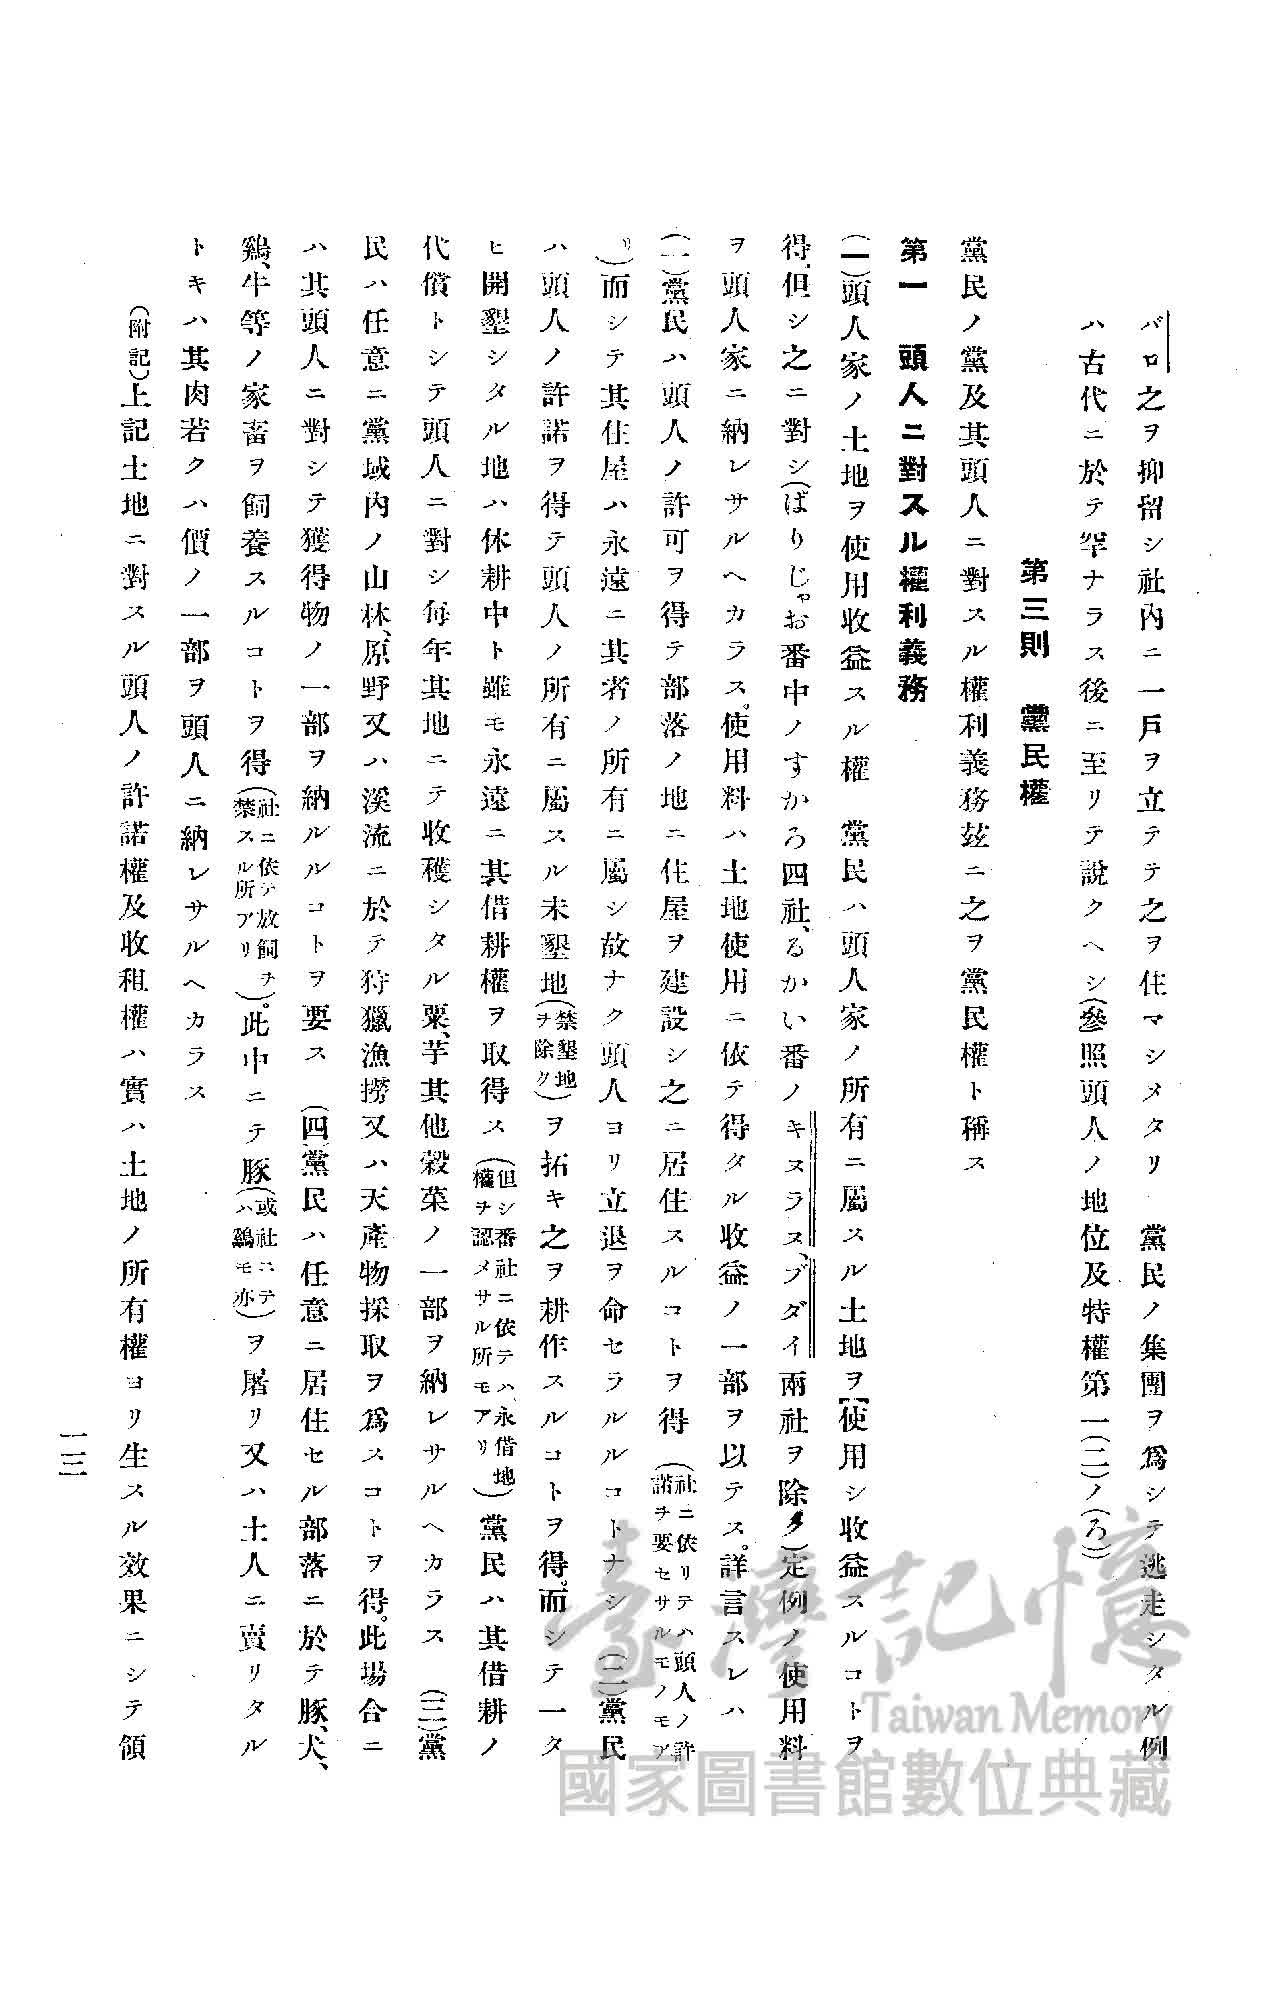 バロ之ヲ抑留シ社內ニ一戶ヲ立テテ之ヲ住マシメタリ　黨民ノ集團ヲ爲シテ逃走シタル例
ハ古代ニ於テ罕ナラス後ニ至リテ說クヘシ(參照頭人ノ地位及特權第一(二)ノ(ろ))
第三則　黨民權
黨民ノ黨及其頭人ニ對スル權利義務玆ニ之ヲ黨民權ト稱ス
第一　頭人ニ對スル權利義務
(一)頭人家ノ土地ヲ使用收益スル權　黨民ハ頭人家ノ所有ニ屬スル土地ヲ【使用シ收益スルコトヲ
得、但シ之ニ對シ(ばりじゃお番中ノすかろ四社、るかい番ノキヌラヌ、ブダイ兩社ヲ除ク)定例ノ使用料
ヲ頭人家ニ納レサルヘカラス。使用料ハ土地使用ニ依テ得タル收益ノ一部ヲ以テス。詳言スレハ
(一)黨民ハ頭人ノ許可ヲ得テ部落ノ地ニ住屋ヲ建設シ之ニ居住スルコトヲ得(社ニ依リテハ頭人ノ許諾ヲ要セサルモノモア
リ)而シテ其住屋ハ永遠ニ其者ノ所有ニ屬シ故ナク頭人ヨリ立退ヲ命セラルルコトナシ　(二)黨民
ハ頭人ノ許諾ヲ得テ頭人ノ所有ニ屬スル未墾地(禁墾地ヲ除ク)ヲ拓キ之ヲ耕作スルコトヲ得。而シテ一タ
ヒ開墾シタル地ハ休耕中ト雖モ永遠ニ其借耕權ヲ取得ス(但シ番社ニ依テハ、永借地權ヲ認メサル所モアリ)黨民ハ其借耕ノ
代償トシテ頭人ニ對シ每年其地ニテ收穫シタル粟、芋其他穀菜ノ一部ヲ納レサルヘカラス　(三)黨
民ハ任意ニ黨域內ノ山林、原野又ハ溪流ニ於テ狩獵漁撈又ハ天產物採取ヲ爲スコトヲ得。此場合ニ
ハ其頭人ニ對シテ獲得物ノ一部ヲ納ルルコトヲ要ス　(四)黨民ハ任意ニ居住セル部落ニ於テ豚、犬、
鷄、牛等ノ家畜ヲ飼養スルコトヲ得(社ニ依テ放飼ヲ禁スル所アリ)。此中ニテ豚(或社ニテハ鷄モ亦)ヲ屠リ又ハ土人ニ賣リタル
トキハ其肉若クハ價ノ一部ヲ頭人ニ納レサルヘカラス
(附記)上記土地ニ對スル頭人ノ許諾權及收租權ハ實ハ土地ノ所有權ヨリ生スル效果ニシテ領
一三
臺灣記憶
Taiwan Memory
國家圖書館數位典藏